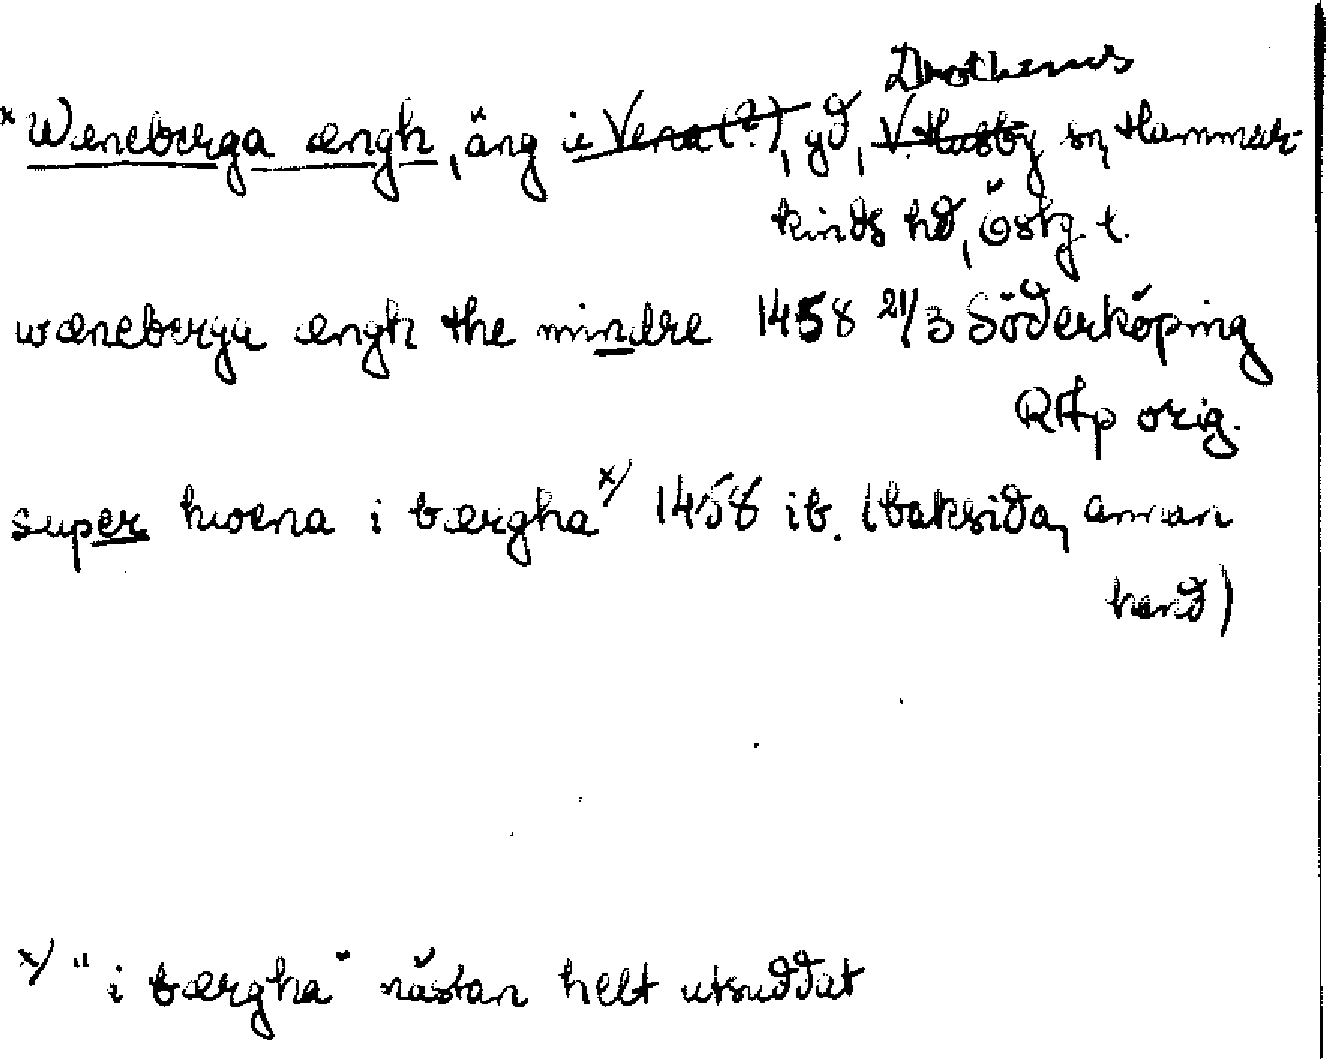 Drothems
× Wæneberga ængh, äng i Vena (?), gd, V. Husby sn, Hammar-
kinds hd, Östg. t.
wæneberga ængh the mindre 1458 21/3 Söderköping
RAp orig.
super hwena i bærgha x/ 1458 ib. (baksida, annan
hand)
x/ "i bærgha" nästan helt utsuddat